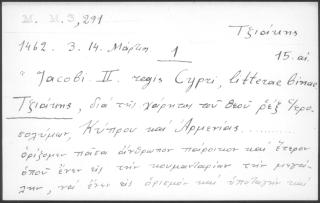 M. M. 3, 291
Τζιάκης
1462. 3. 14. Μάρτη
1
15. αι.
" Jacobi II. regis Cypri, litterae binae
Τζιάκης, διά τῆς χάριτος τοῦ Θεοῦ ρέξ Ἱερο-
σολύμων, Κύπρου καί Ἀρμενίας..........
ὁρίζομεν πᾶσα ἄνθρωπον πάροικον καί ἕτερον
ὁποῦ ἔνεν εἰς τήν κουμανταρίαν τήν μεγά-
λην, νά ἔνεν εἰς ὁρισμόν καί ὑποταγήν καί